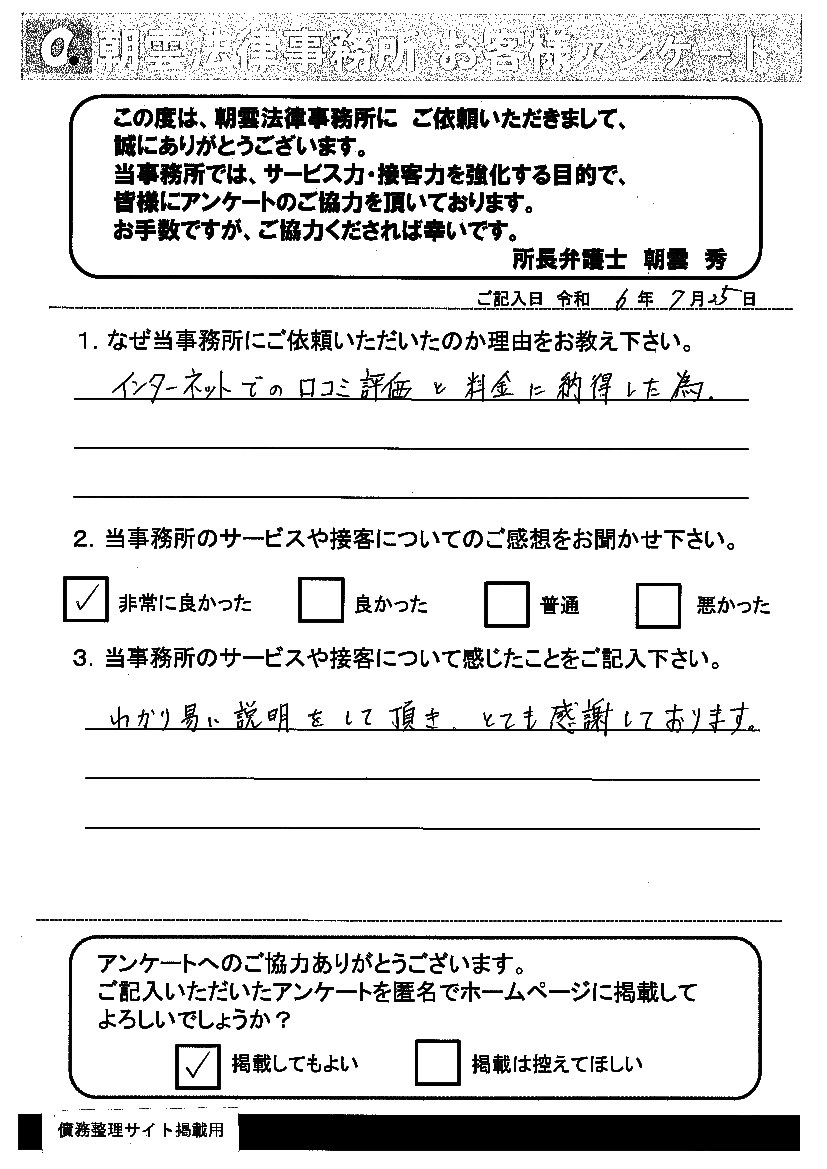 a. 朝雲法律事務所 お客様アンケート
この度は、朝雲法律事務所に ご依頼いただきまして、
誠にありがとうございます。
当事務所では、サービス力・接客力を強化する目的で、
皆様にアンケートのご協力を頂いております。
お手数ですが、ご協力くだされば幸いです。
所長弁護士 朝雲 秀
ご記入日 令和 6年 7月25日
1. なぜ当事務所にご依頼いただいたのか理由をお教え下さい。
インターネットでの口コミ評価と料金に納得した為.
2. 当事務所のサービスや接客についてのご感想をお聞かせ下さい。
✓ 非常に良かった 良かった 普通 悪かった
3. 当事務所のサービスや接客について感じたことをご記入下さい。
わかり易い説明をして頂き、とても感謝しております。
アンケートへのご協力ありがとうございます。
ご記入いただいたアンケートを匿名でホームページに掲載して
よろしいでしょうか？
✓ 掲載してもよい 掲載は控えてほしい
債務整理サイト掲載用